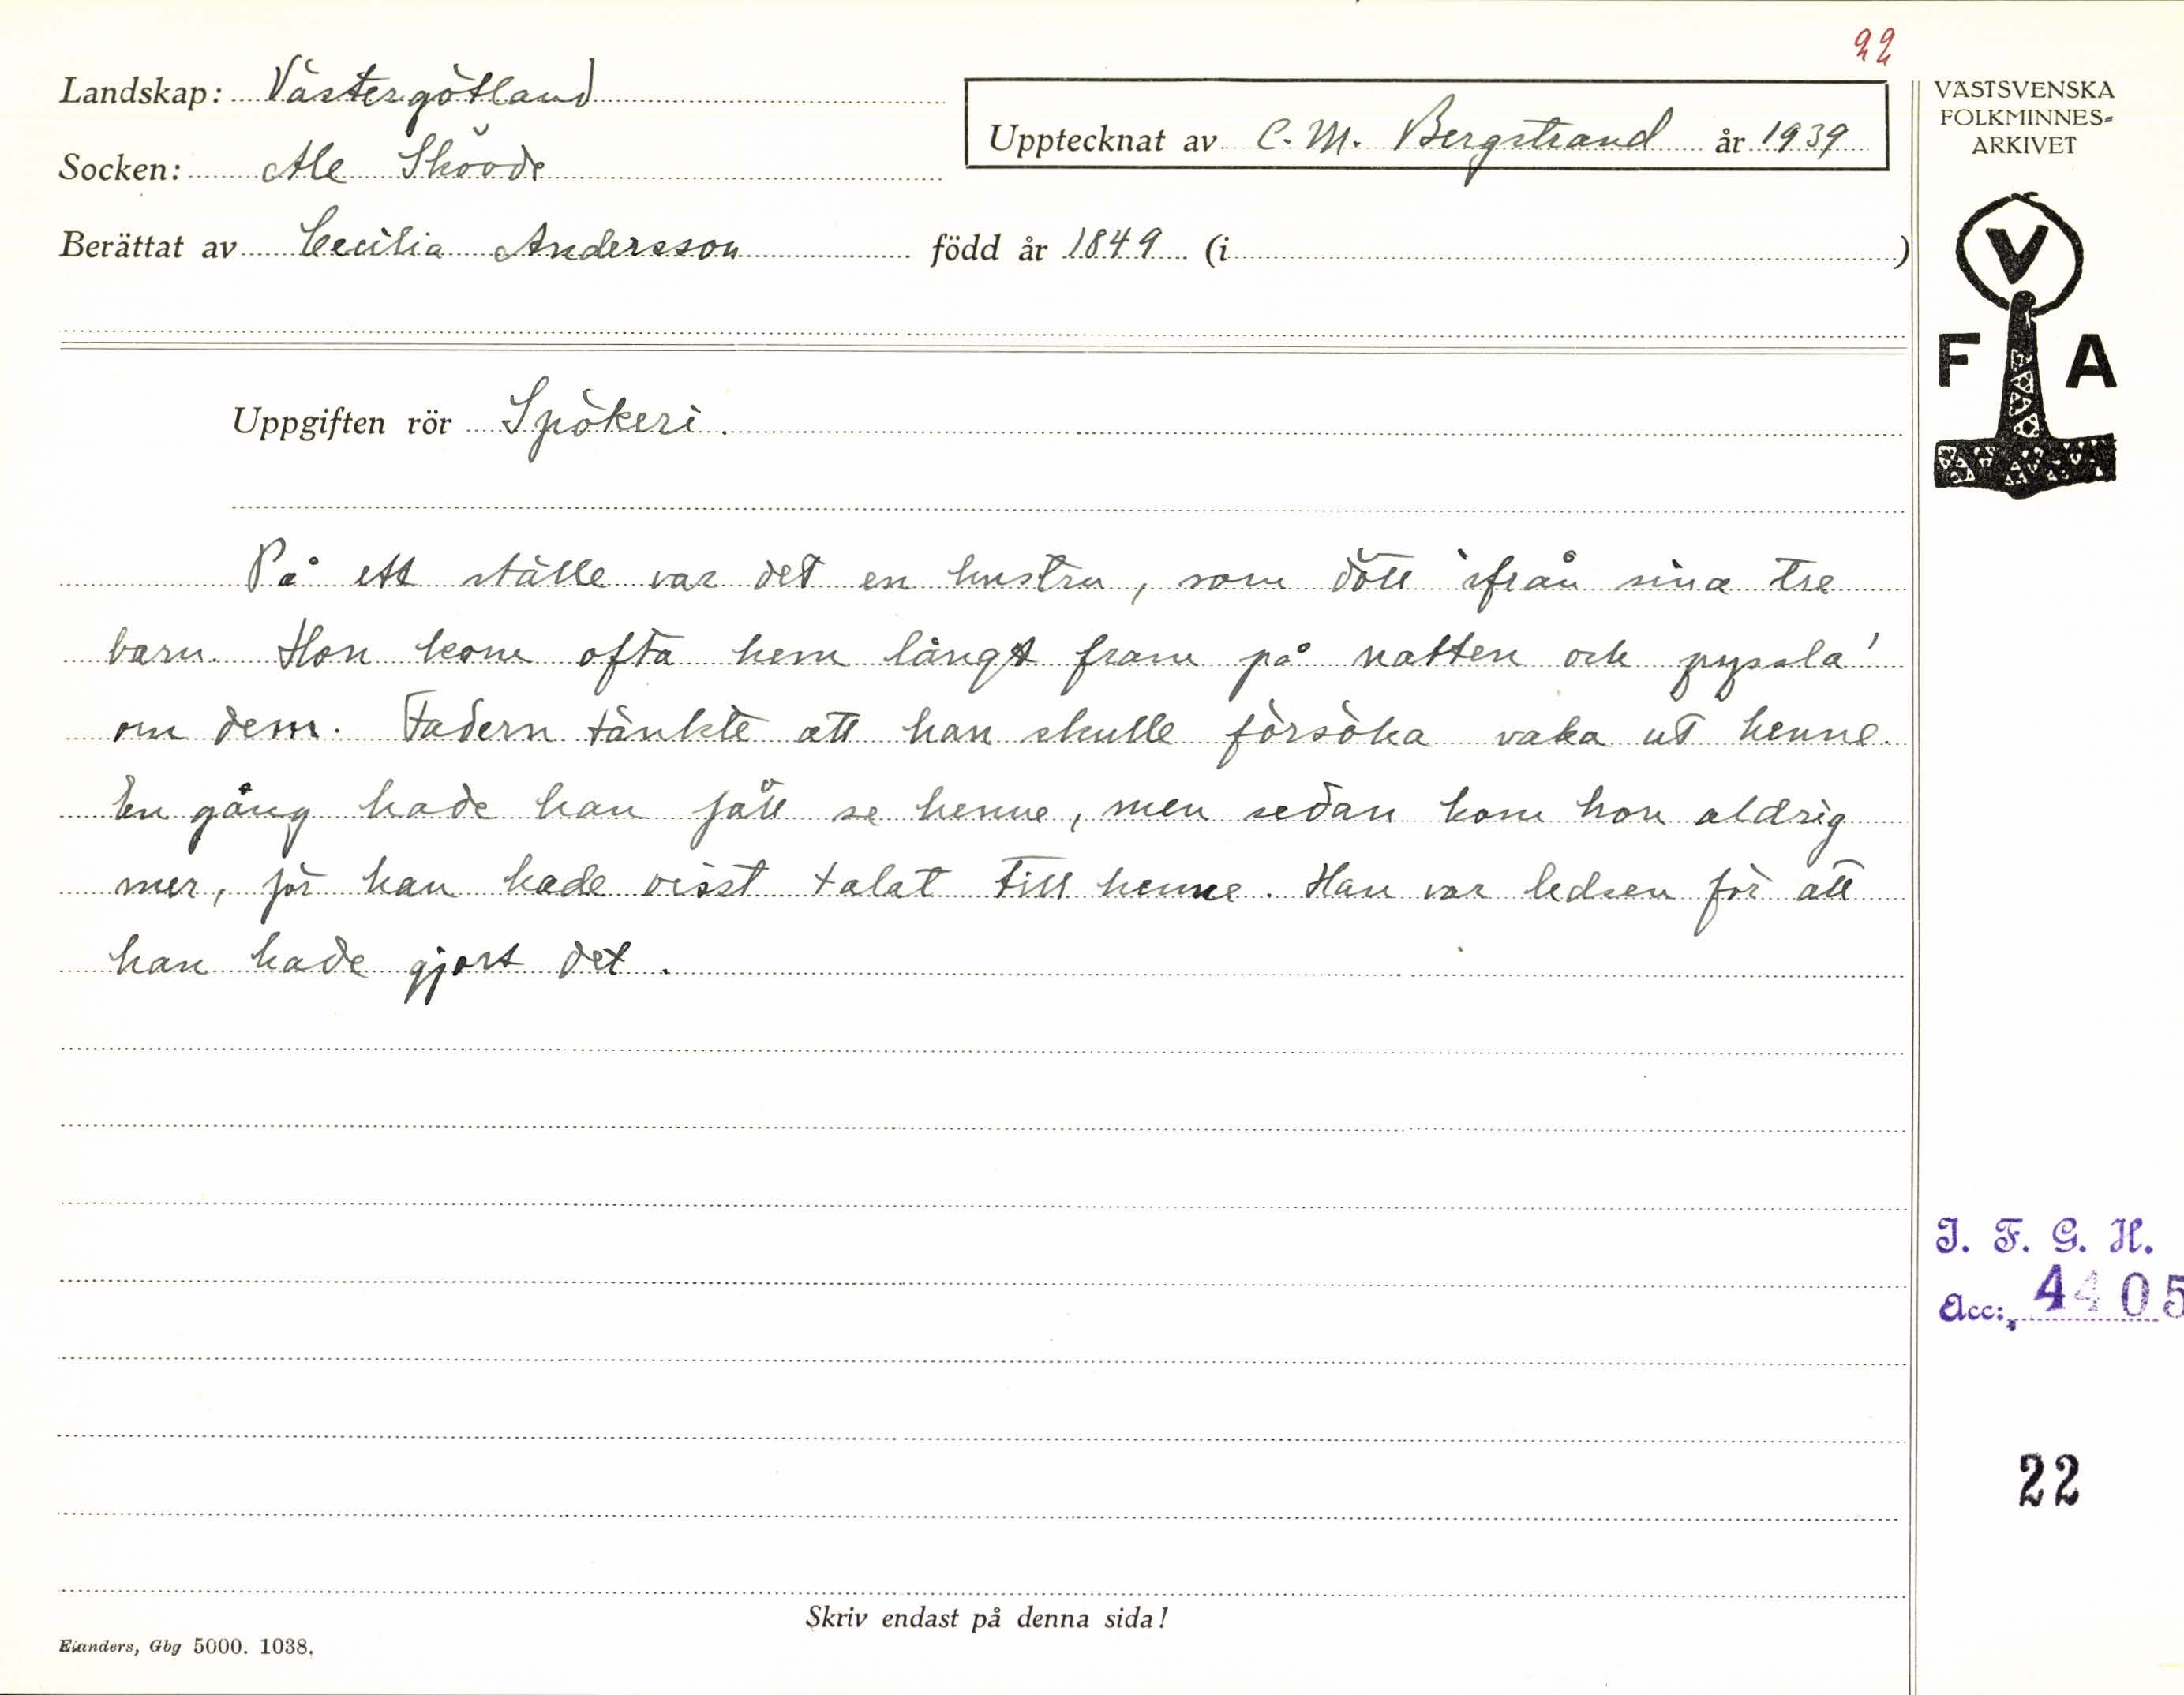 22
Landskap: Västergötland
Socken: Ale Skövde
Upptecknat av C. M. Bergstrand år 1939
Berättat av Cecilia Andersson född år 1849 (i )
VÄSTSVENSKA
FOLKMINNES-
ARKIVET
V
F A
Uppgiften rör Spökeri.
På ett ställe var det en hustru, som dött ifrån sina tre
barn. Hon kom ofta hem långt fram på natten och pyssla'
om dem. Fadern tänkte att han skulle försöka vaka ut henne.
En gång hade han fått se henne, men sedan kom hon aldrig
mer, för han hade visst talat till henne. Han var ledsen för att
han hade gjort det.
I. F. G. H.
Acc: 4405
22
Skriv endast på denna sida!
Elanders, Gbg 5000. 1038.